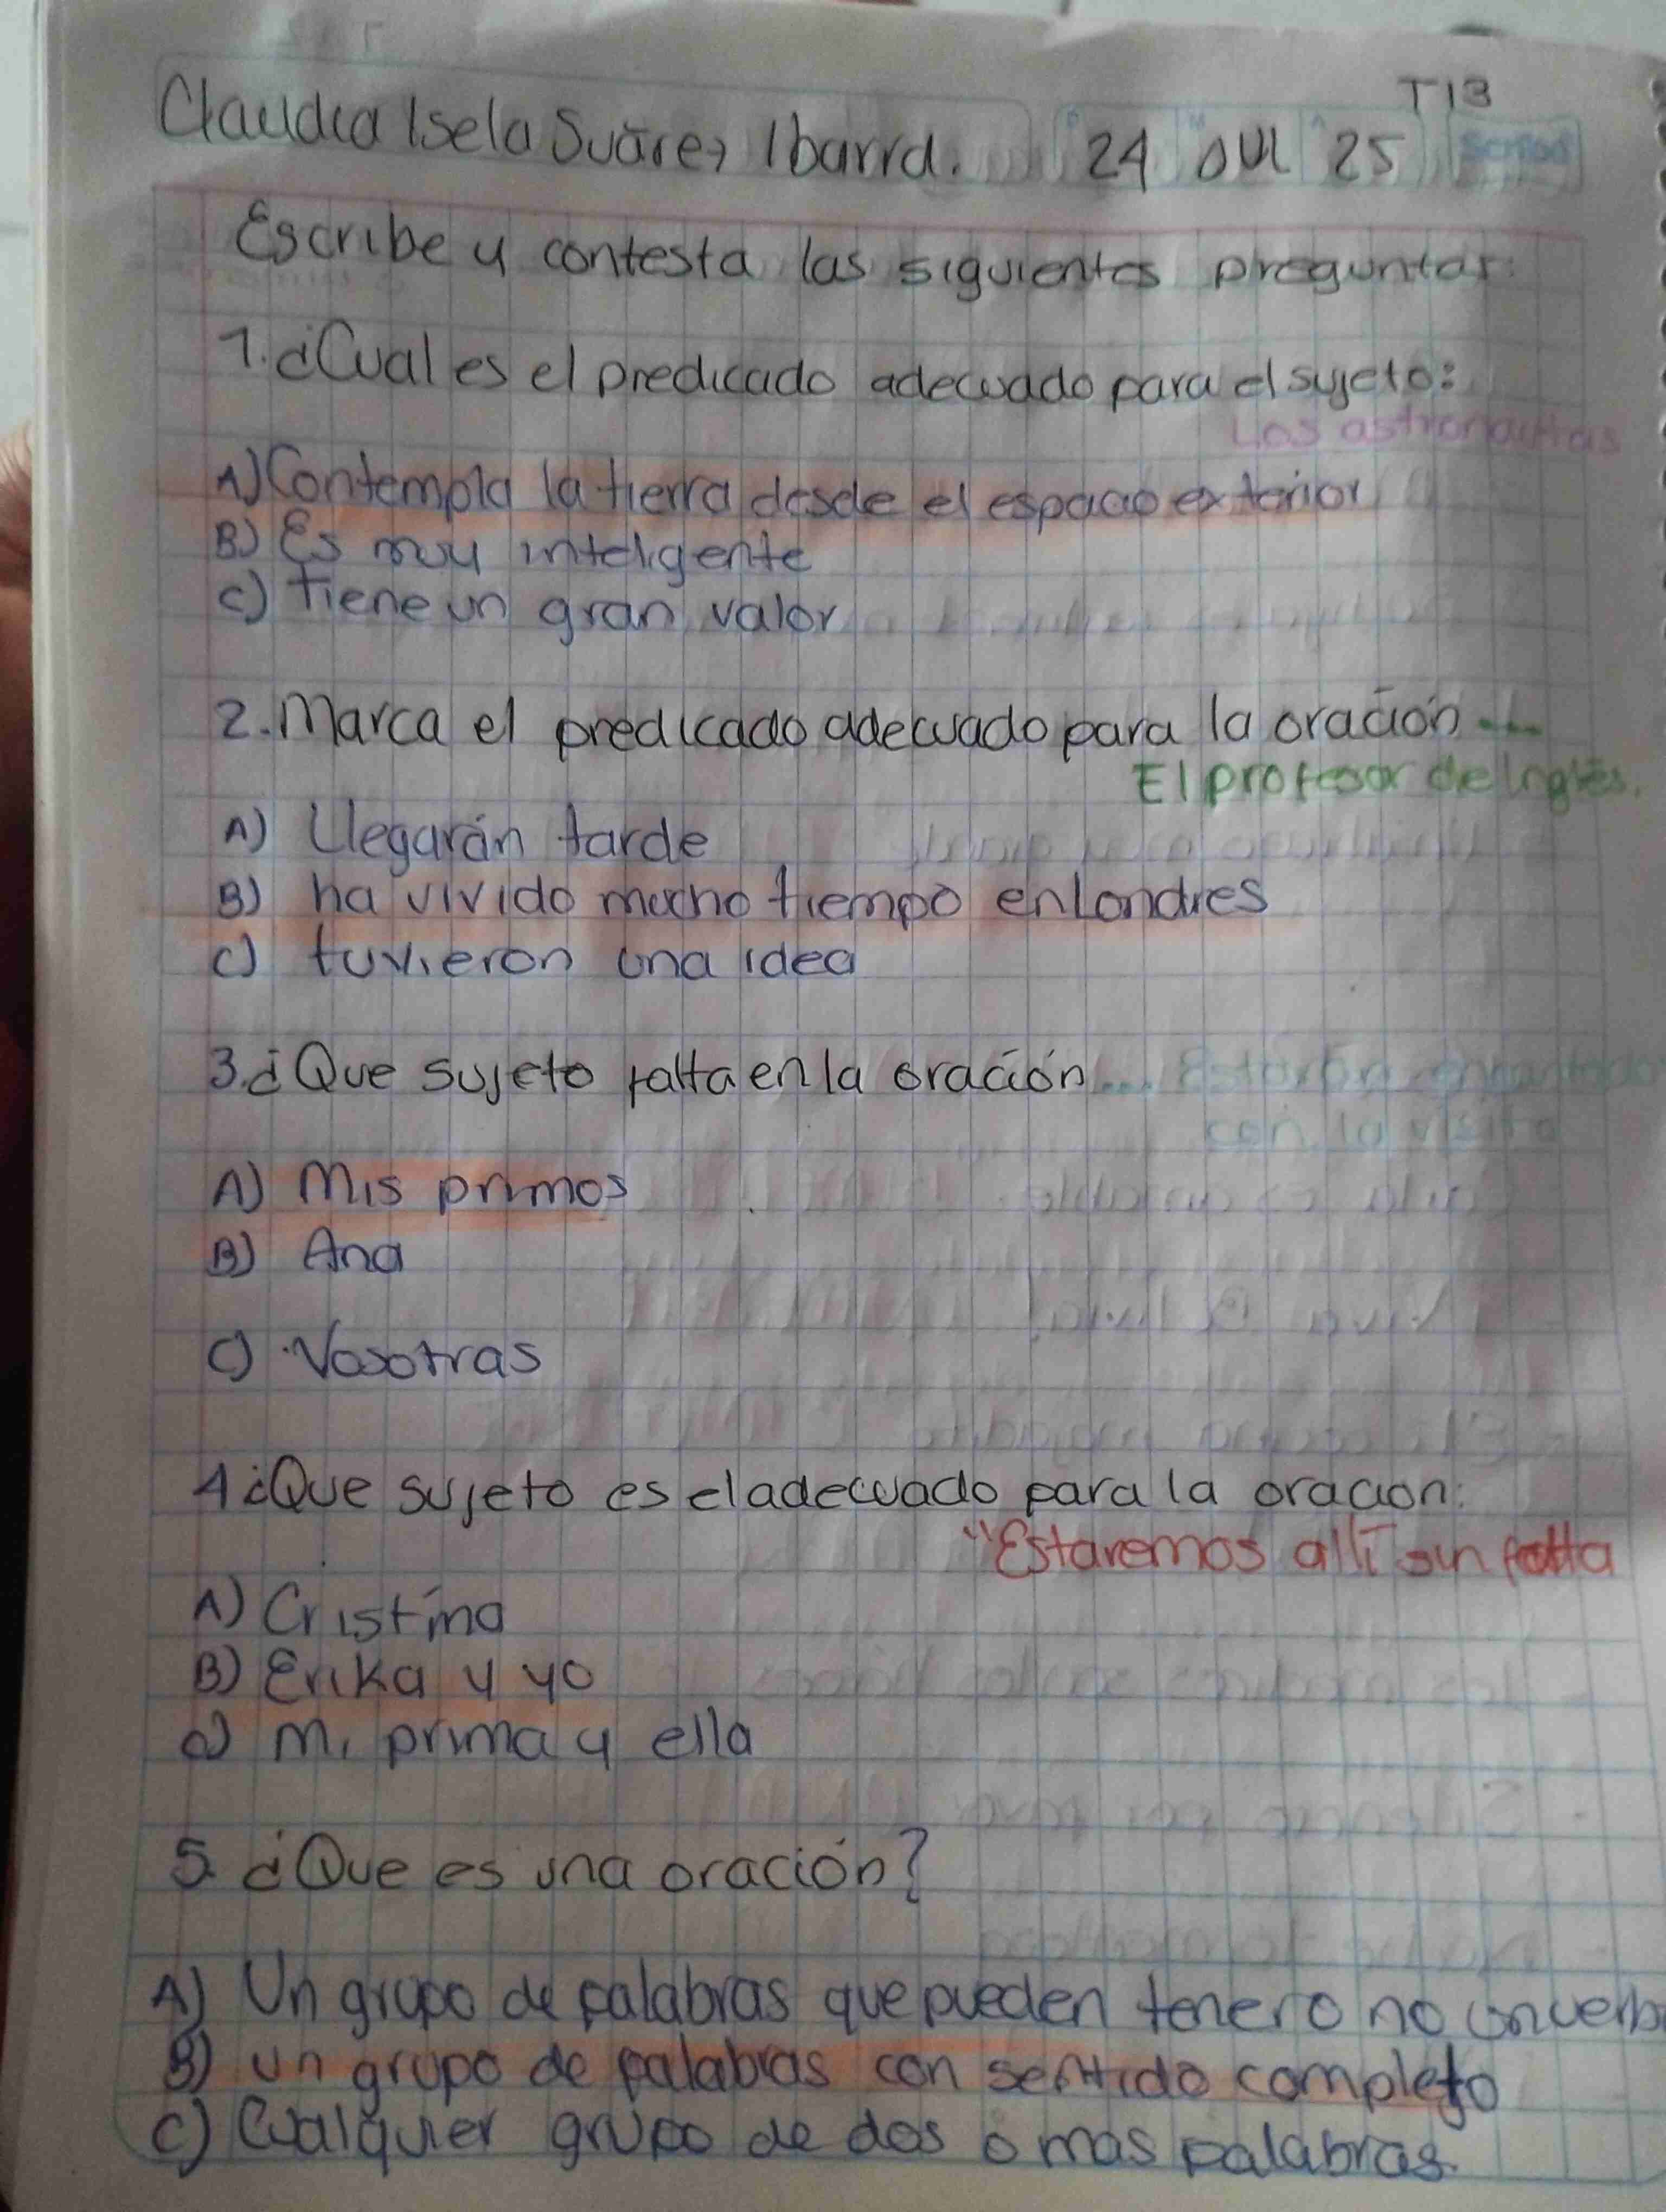 T13
Claudia Isela Suárez Ibarra. 24 JUL 25 Scribe
Escribe y contesta las siguientes preguntas:
1. ¿Cual es el predicado adecuado para el sujeto:
Los astronautas
A) Contempla la tierra desde el espacio exterior
B) Es muy inteligente
C) Tiene un gran valor
2. Marca el predicado adecuado para la oración ....
El profesor de Inglés.
A) Llegarán tarde
B) ha vivido mucho tiempo en Londres
C) tuvieron una idea
3. ¿Que sujeto falta en la oración... Estarán encantado
con la visita
A) Mis primos
B) Ana
C) Vosotras
4 ¿Que sujeto es el adecuado para la oracion:
"Estaremos allí sin falta
A) Cristina
B) Erika y yo
C) Mi prima y ella
5. ¿Que es una oración?
A) Un grupo de palabras que pueden tener o no un verb
B) un grupo de palabras con sentido completo
C) Cualquier grupo de dos o mas palabras.